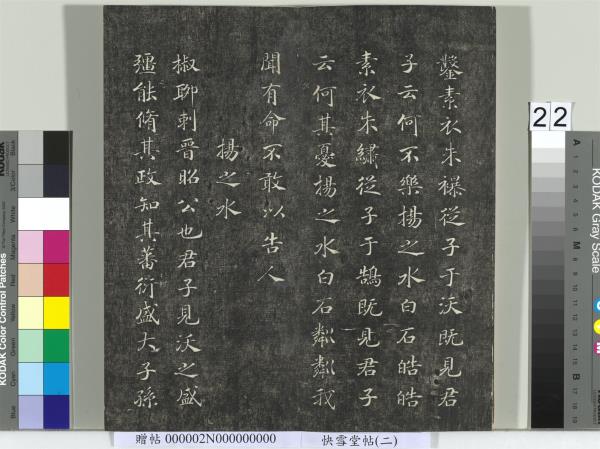 鑿素衣朱襮從子于沃既見君
子云何不樂揚之水白石皓皓
素衣朱繡從子于鵠既見君子
云何其憂揚之水白石粼粼我
聞有命不敢以告人
揚之水
椒聊刺晉昭公也君子見沃之盛
彊能脩其政知其蕃衍盛大子孫
22
KODAK Gray Scale
A 1 2 3 4 5 6 M 8 9 10 11 12 13 14 15 B 17 18 19
KODAK Color Control Patches
Blue
Cyan
Green
Yellow
Red
Magenta
White
3/Color
Black
贈帖 000002N000000000
快雪堂帖(二)